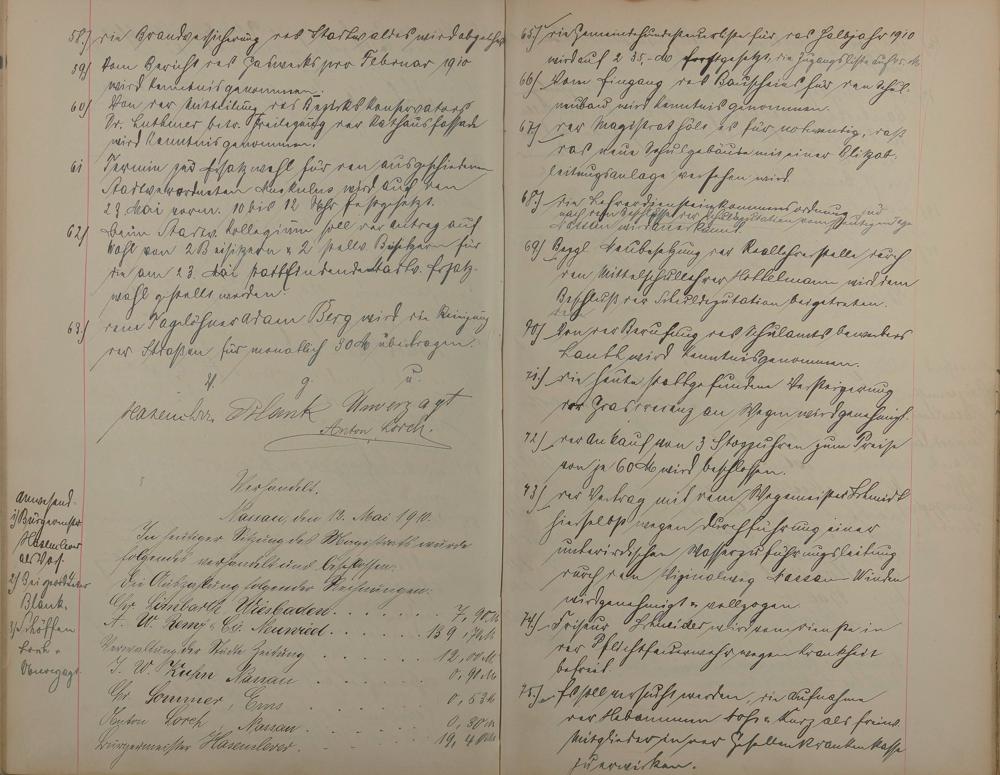 58.) die Brandversicherung des Stadtwaldes wird abgelehnt
59) Vom Bericht des Gaswerks pro Februar 1910
wird Kenntnis genommen.
60) Von der Mitteilung des Bezirkskonservators
Dr. Luthmer betr. Freilegung der Rathausfassade
wird Kenntnis genommen.
61 Termin zur Ersatzwahl für den ausgeschiedenen
Stadtverordneten wird auf den
23. Mai vorm. 10 bis 12 Uhr festgesetzt.
62) beim Stadtv. Kollegium soll der Antrag auf
Wahl von 2 Beisitzern u. 2 stellv. Beisitzern für
die am 23. Mai stattfindende Stadtv. Ersatz-
wahl gestellt werden.
63.) dem Tagelöhner Adam Berg wird die Reinigung
der Straßen für monatlich 30 M übertragen.
V. g. u.
Hasenclever. Blank Unverzagt
Anton Lorch.
Verhandelt.
Nassau, den 12. Mai 1910.
Anwesend.
1) Bürgermeister
Hasenclever
als Vors.
2) Beigeordneter
Blank.
3) Schöffen
Lorch u.
Unverzagt
In heutiger Sitzung des Magistrats wurde
folgendes verhandelt und beschlossen:
die Auszahlung folgender Rechnungen:
Chr. Limbarth, Wiesbaden . . . . . . 7,90 M
A. W. Remy u. Co. Neuwied . . . . . . 139,
Verwaltung der Städte Zeitung . . . . 12,00 M
J. W. Kuhn Nassau . . . . . 0,91 M
Chr. Sommer, Ems . . . . . 0,53 M
Anton Lorch, Nassau . . . . . 0,80 M
Bürgermeister Hasenclever . . . . . 19,40 M
65) die Gemeindehundesteuerliste für das Halbjahr 1910
wird auf 235,- M festgesetzt, die Zugangsliste auf
66) Vom Eingang des Bauscheins für den Schul-
neubau wird Kenntnis genommen.
67) der Magistrat hält es für notwendig, daß
das neue Schulgebäude mit einer Blitzab-
leitungsanlage versehen wird.
68.) die Lehrerdiensteinkommensordnung
nach dem Beschlusse der Schuldeputation vom heutigen Tage
Nassau wird anerkannt
69) Bezgl. Neubesetzung der Reallehrerstelle durch
den Mittelschullehrer wird dem
Beschluß der Schuldeputation beigetreten.
70) Von der Berufung des Schulamtsbewerbers
Lauth wird Kenntnis genommen.
71.) die heute stattgefundene Versteigerung
der Grascrescenz an Wegen wird genehmigt.
72) der Ankauf von 3 Stoppuhren zum Preise
von je 60 M wird beschlossen.
73) der Vertrag mit dem Wegemeister Schmidt
hierselbst wegen Durchführung einer
unterirdischen Wasserzuführungsleitung
durch den Vizinalweg Nassau-Winden
wird genehmigt u. vollzogen.
74) Friseur Schneider wird vom Dienste in
der Pflichtfeuerwehr wegen Krankheit
befreit.
75.) Es soll versucht werden, die Aufnahme
der Hebammen u. Kurz als freiw.
Mitglieder in der Gesellenkrankenkasse
zu erwirken.